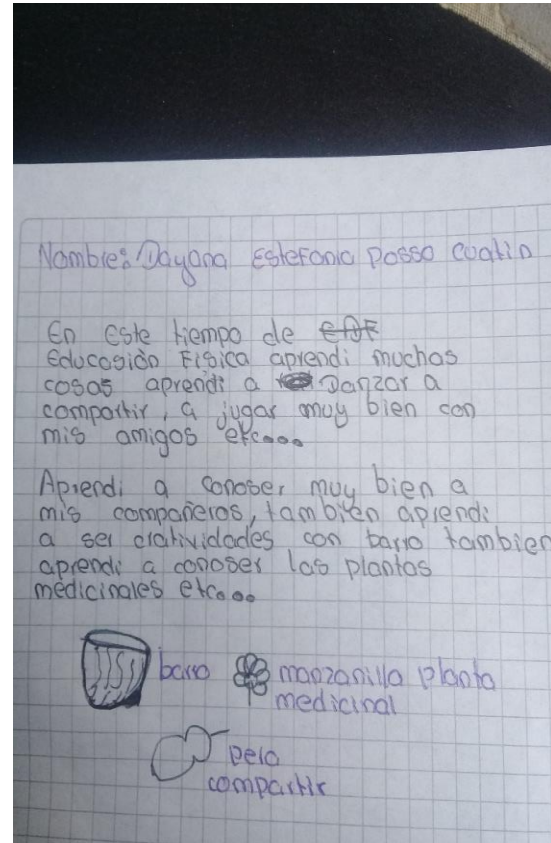 Nombre: Dayana Estefania Posso cuatin
En Este tiempo de
Educasión Fisica aprendi muchas
cosas aprendi a Danzar a
compartir, a jugar muy bien con
mis amigos etc...
Aprendi a conoser muy bien a
mis compañeros, tambien aprendi
a ser cratividades con barro tambien
aprendi a conoser las plantas
medicinales etc...
barro manzanilla planta
medicinal
pera
compartir